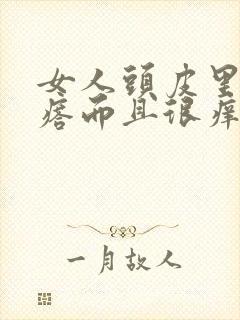 女人頭皮里
瘩而且很痒
一月故人